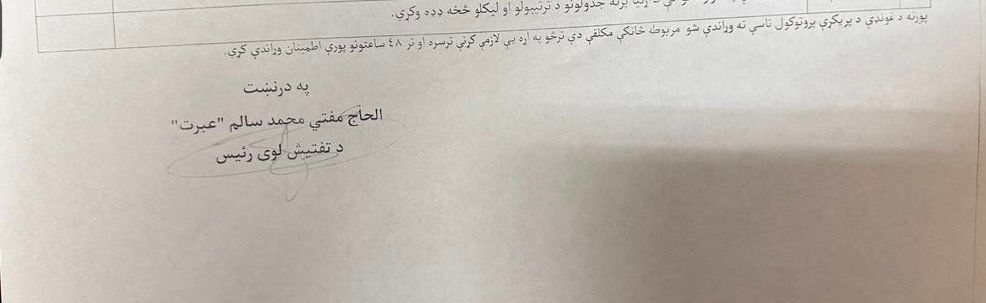 پرته جدولونو د ترتیبولو او لیکلو څخه ډډه وکړي.
پورته د غونډې د پریکړې پروتوکول تاسې ته وړاندې شو مربوطه څانګې مکلفې دي ترڅو په اړه یې لازمې کړنې ترسره او تر ٤٨ ساعتونو پورې اطمینان وړاندې کړي.
په درنښت
الحاج مفتي محمد سالم "عبرت"
د تفتیش لوی رئیس